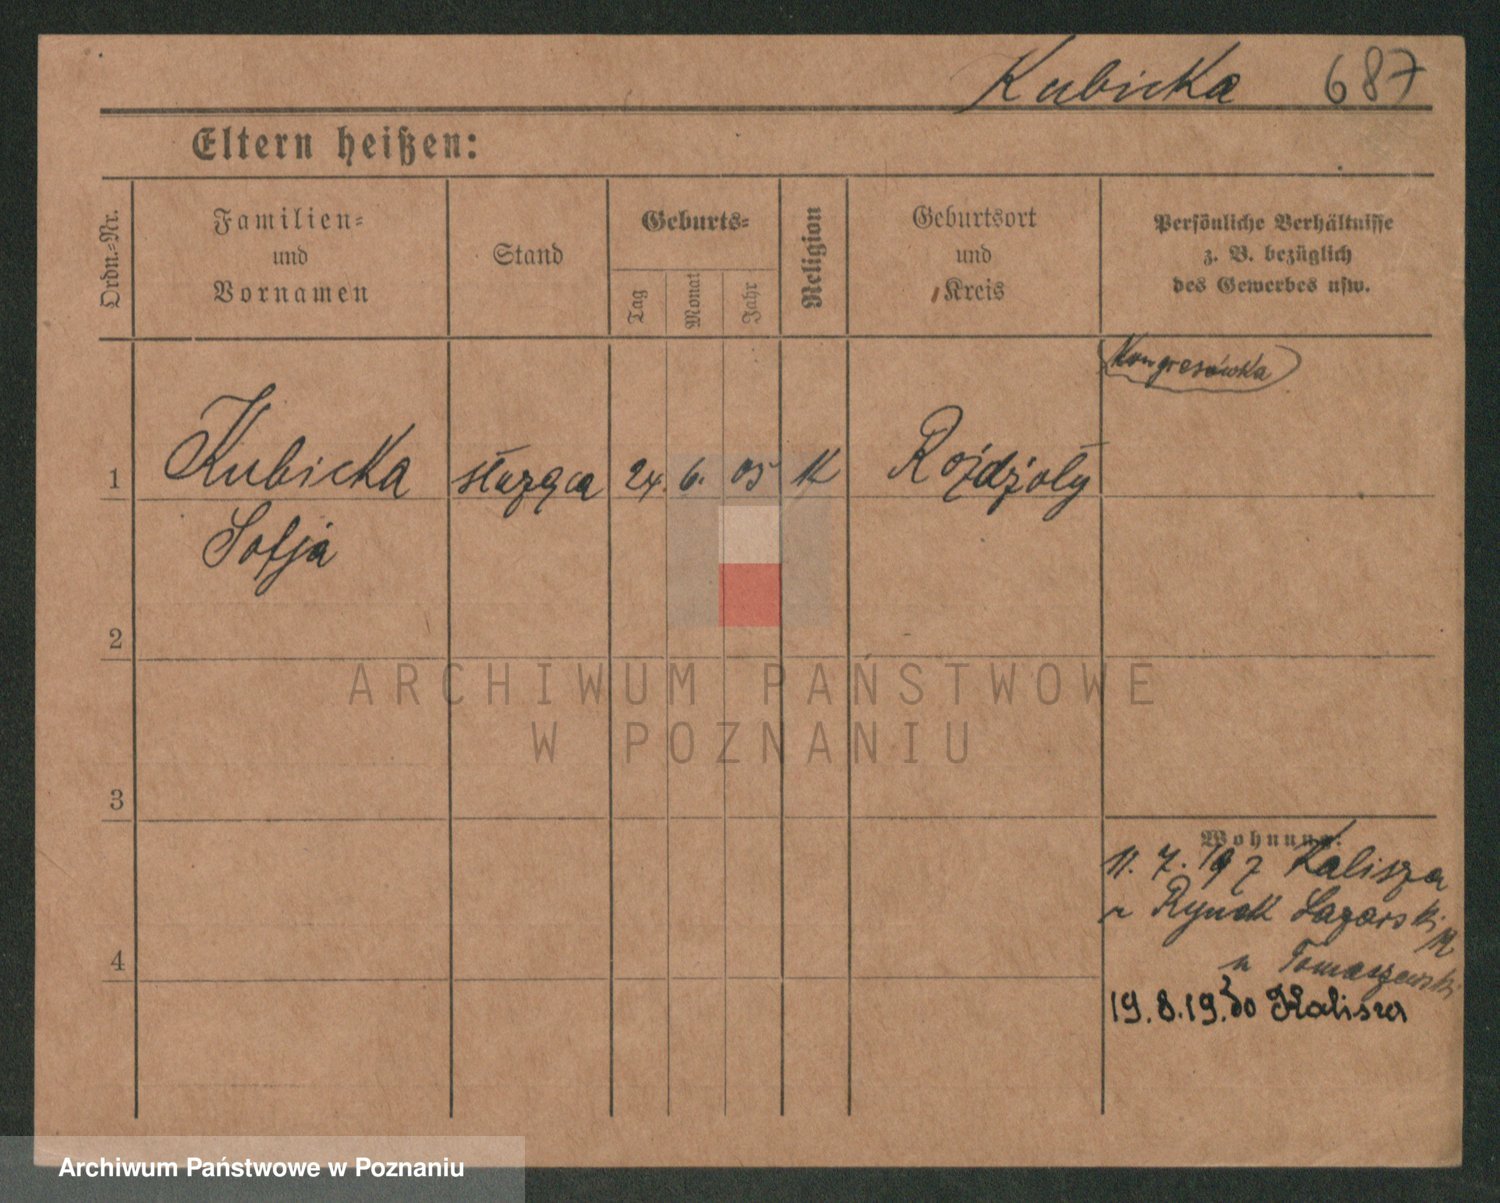 Kubicka 687
Eltern heißen:
Ordn.-Nr.
Familien-
und
Vornamen
Stand
Geburts-
Tag
Monat
Jahr
Religion
Geburtsort
und
Kreis
Persönliche Verhältnisse
z. B. bezüglich
des Gewerbes usw.
Kongresówka
1 Kubicka służąca 24. 6. 05 K Rojdżoły
Sofja
2
3
4
Wohnung:
11. 7. 19 z Kalisza
Rynek Łazarski
u Tomaszewski
19.8.19. do Kalisza
ARCHIWUM PAŃSTWOWE
W POZNANIU
Archiwum Państwowe w Poznaniu